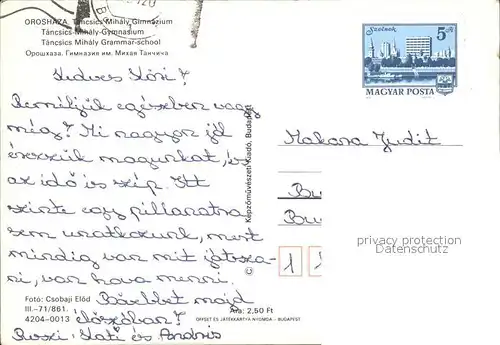 OROSHÁZA. Táncsics Mihály Gimnázium
Táncsics-Mihály-Gymnasium
Táncsics Mihály Grammar-school
Орошхаза. Гимназия им. Михая Танчича
Kedves
Reméljük egészben vagy
még? Mi nagyon jól
érezzük magunkat, és
az idő is szép. Itt
szinte egy pillanatra
sem unatkozunk, mert
mindig van mit játsza-
ni, van hova menni.
Bővebbet majd
élőszóban!
Kati és András
Fotó: Csobaji Előd
III.-71/861. 1
4204-0013
Ára: 2,50 Ft
OFFSET ÉS JÁTÉKKÁRTYA NYOMDA – BUDAPEST
© Képzőművészeti Kiadó, Budapest
Szolnok
5 Ft
MAGYAR POSTA
Makara Judit
Bu
Bu
1 1
privacy protection
DELCAMPE